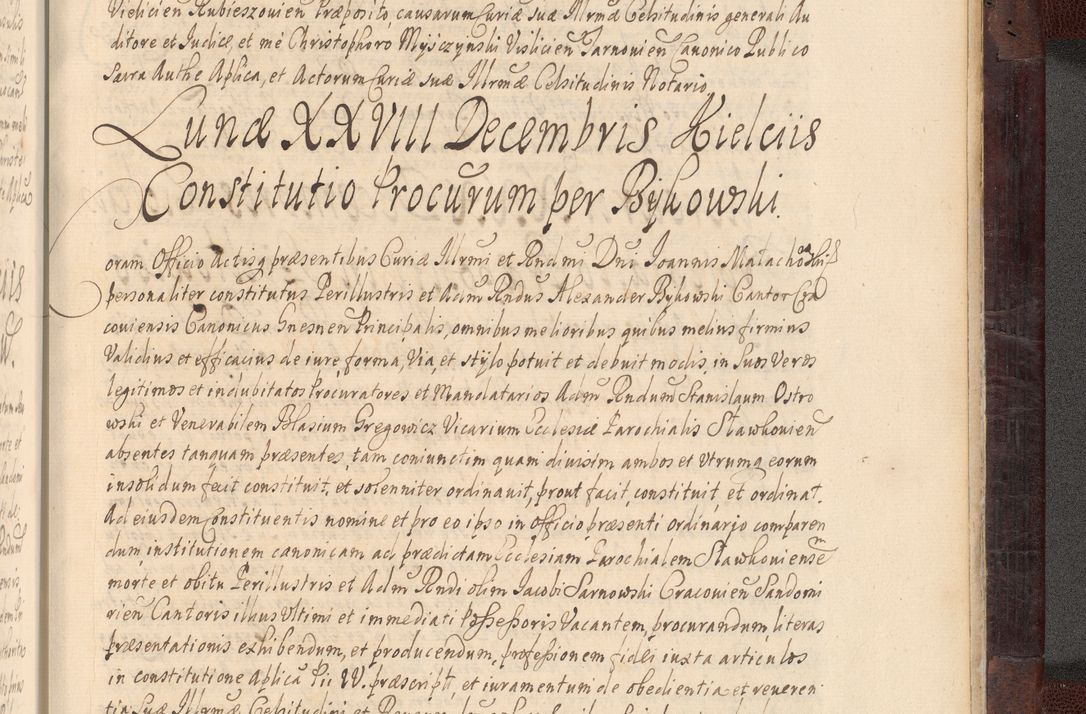 Vielicien Rubieszovien Præposito, causarum Curiæ suæ Illrmæ Celsitudinis generali Au
ditore et Judice, et me Christophoro Myszczynski Vislicien Tarnovien Canonico Publico
Sacra Authe Aplica, et Actorum Curiæ suæ Illrmæ Celsitudinis Notario
Lunæ XXVIII Decembris Kielciis
Constitutio Procurum per Bykowski.
oram Officio Actisq præsentibus Curiæ Illrmi et Rndmi Dni Joannis Malachowski
personaliter constitutus Perillustris et Adm Rndus Alexander Bykowski Cantor Cra
coviensis Canonicus Gnesnen Principalis, omnibus melioribus quibus melius firmius
Validius et efficacius de iure, forma, Via, et stylo potuit et debuit modis, in Suos Veros
legitimos et indubitatos Procuratores et Mandatarios Adm Rndum Stanislaum Ostro
wski et Venerabilem Blasium Gregowicz Vicarium Ecclesiæ Parochialis Slawkovien
absentes tanquam præsentes, tam coniunctim quam diuisim ambos et Utrumq eorum
insolidum fecit constituit, et solenniter ordinauit, prout facit, constituit, et ordinat.
Ad eiusdem Constituentis nomine et pro eo ipso in Officio præsenti ordinario comparen
dum institutionem canonicam ad prædictam Ecclesiam Parochialem Slawkouiensem
morte et obitu Perillustris et Adm Rndi olim Jacobi Sarnowski Cracouien Sandomi
rien Cantoris illius Ultimi et immediati Possessoris Vacantem, procurandum, literas
præsentationis exhibendum, et producendum, professionem fidei iuxta articulos
in constitutione Aplica Pii IV. præscripti, et iuramentum de obedientia et reueren
tia Suæ Illrmæ Celsitudini et